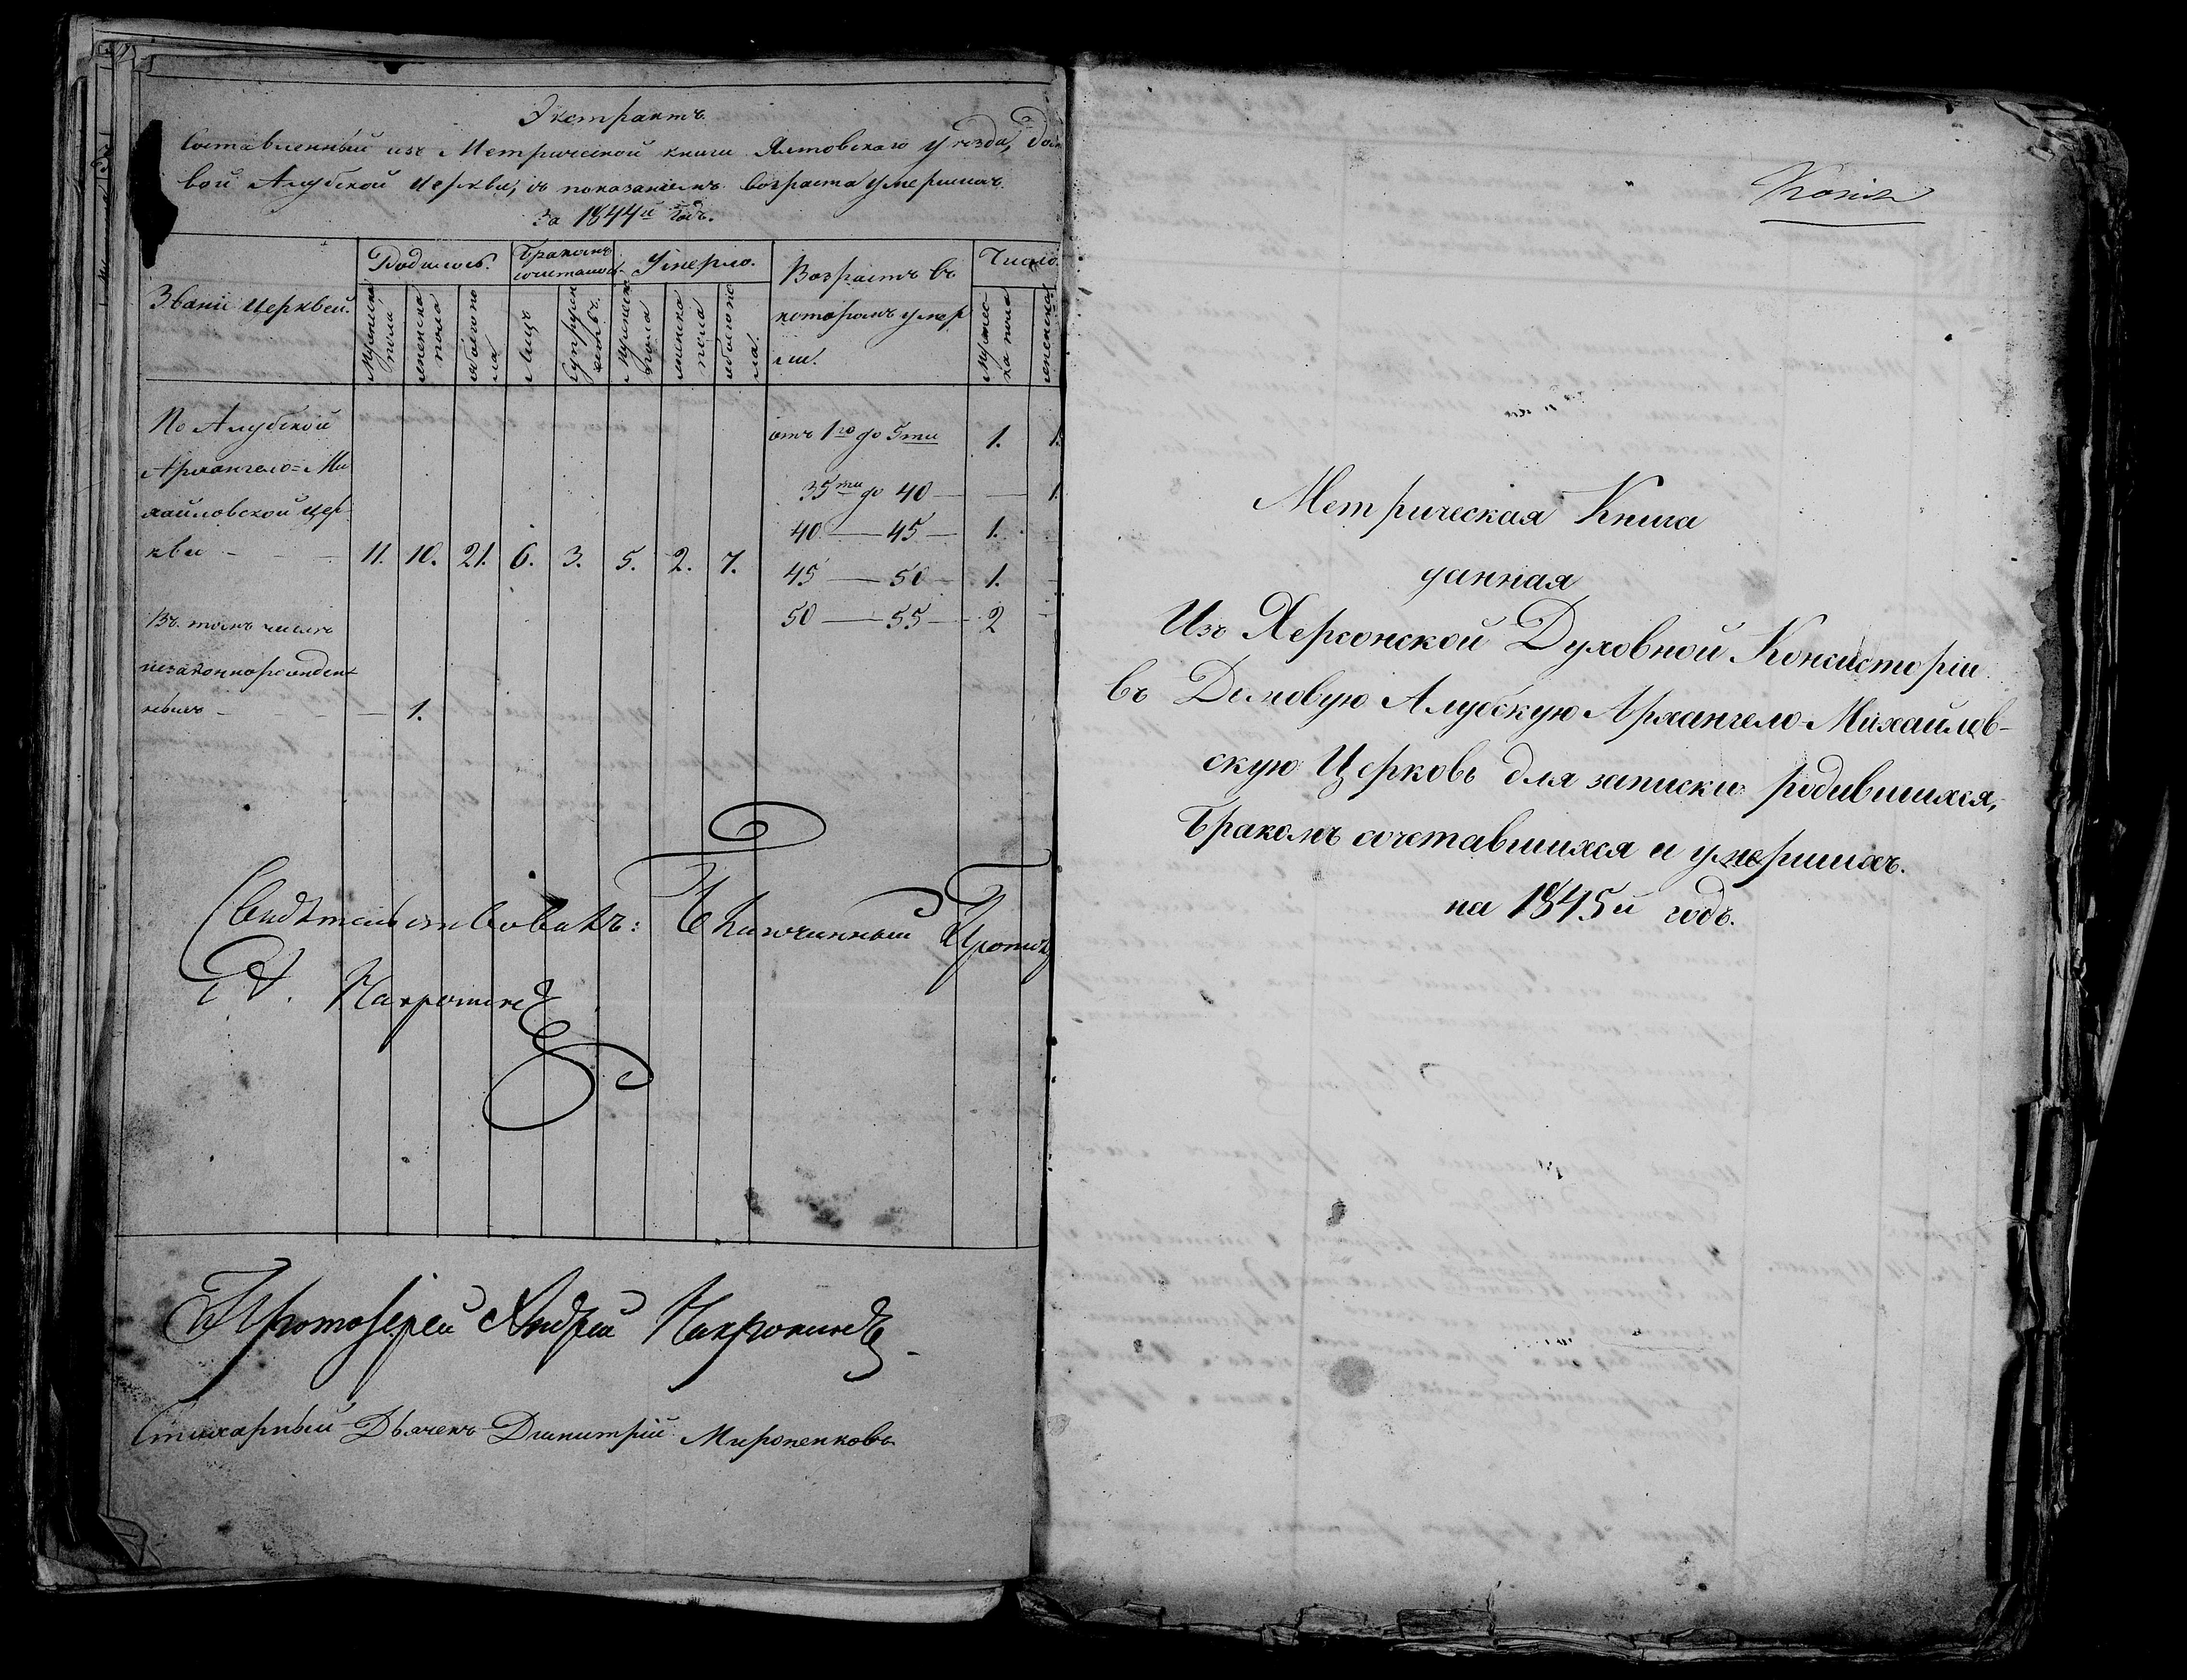 Экстрактъ
Составленный изъ Метрической книги Ялтовскаго уѣзда, Домо
вой Алубской Церкви, съ показанiемъ возраста умершихъ.
за 1844й годъ.
Званiе Церквей.
Родилось.
Бракомъ сочеталось
Умерло.
Возрастъ въ
которомъ умер
ли.
Число
Мужеска пола
женска пола
обоего пола
Лицъ
Супружествъ.
Мужеска пола
женска пола
обоего пола.
Мужеска пола
женска
По Алубской
Архангело=Ми
хайловской Цер
кви - - - 11. 10. 21. 6. 3. 5. 2. 7.
отъ 1го до 5ти 1. 1.
35ти до 40 — — 1.
40 — 45 — 1.
45 — 50 — 1. -
50 — 55 — 2 -
Въ томъ числѣ
незаконнорожден
ныхъ - - - — 1.
Свидѣтельствовалъ: Благочинный Протоiе
А. Накропинъ
Протоiерей Андрей Накропинъ
Стихарный Дьячекъ Димитрiй Мироненковъ
Копiя
Метрическая Книга
данная
Изъ Херсонской Духовной Консисторiи
въ Домовую Алубскую Архангело-Михайлов-
скую Церковь для записки родившихся,
Бракомъ сочетавшихся и умершихъ.
на 1845й годъ.